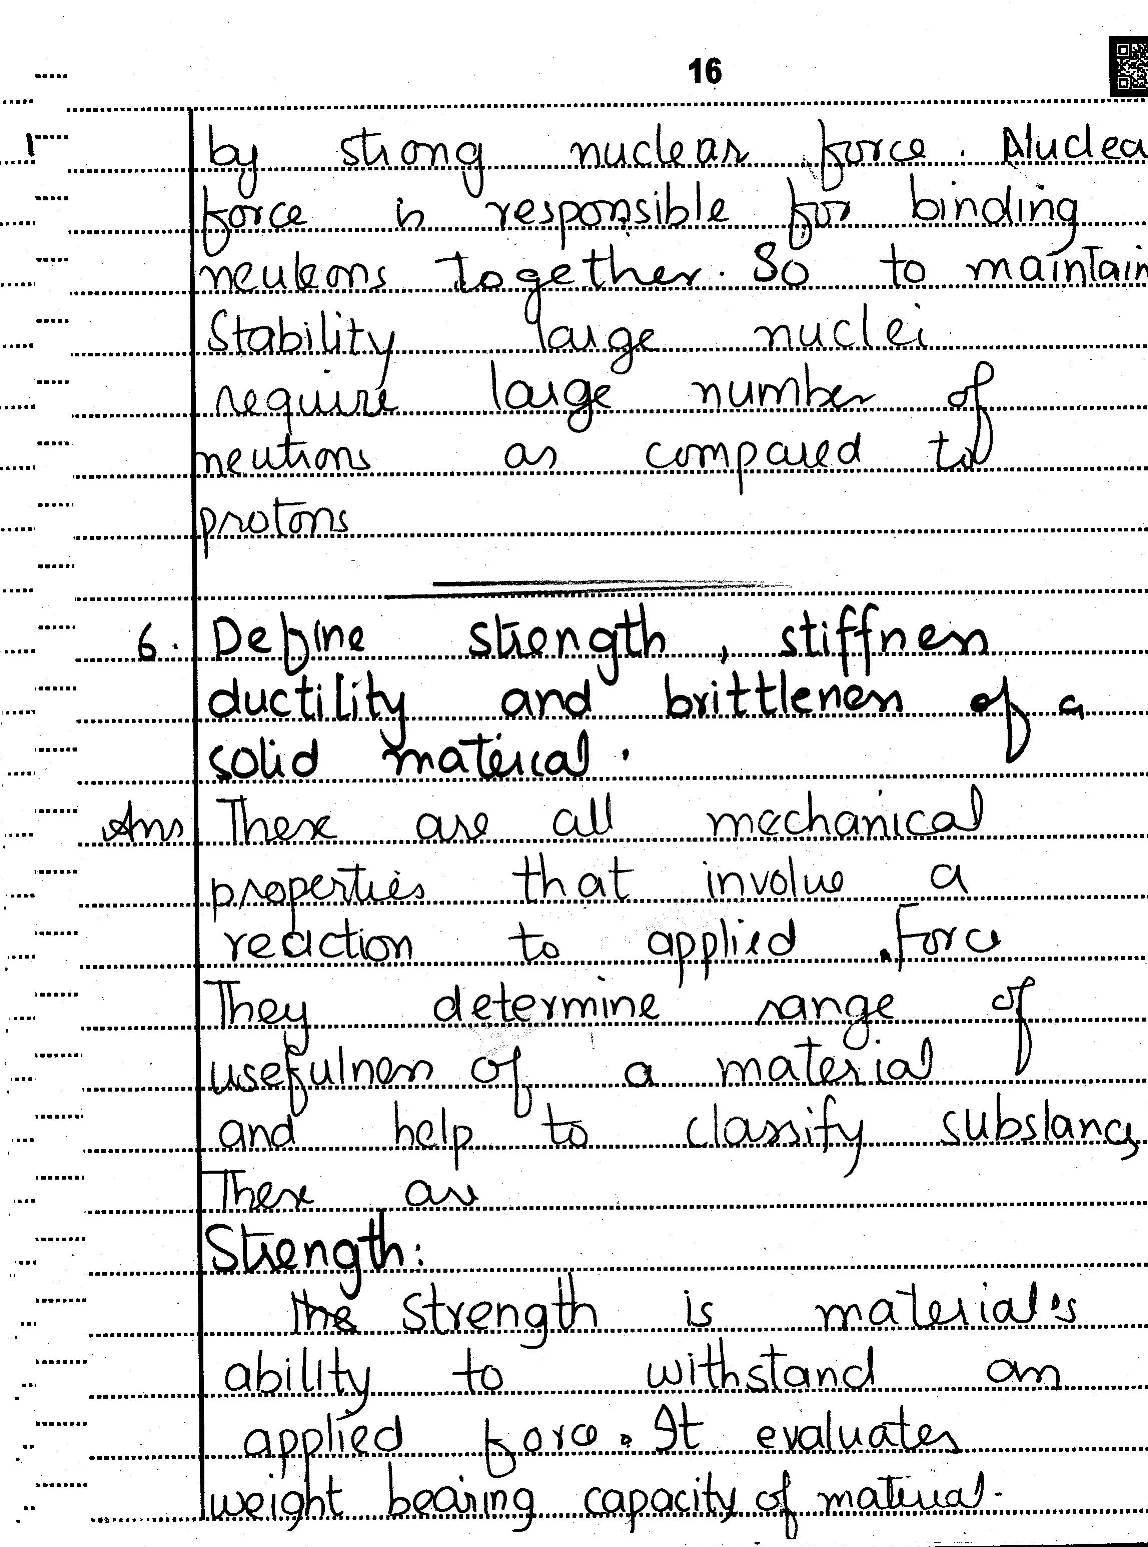 16
by strong nuclear force. Nuclea
force is responsible for binding
neutrons together. So to maintain
Stability large nuclei
require large number of
neutrons as compared to
protons
6. Define strength, stiffness
ductility and brittleness of a
solid material.
Ans These are all mechanical
properties that involve a
reaction to applied Force
They determine range of
usefulness of a material
and help to classify substancs
These are
Strength:
the strength is material's
ability to withstand an
applied force. It evaluates
weight bearing capacity of material.